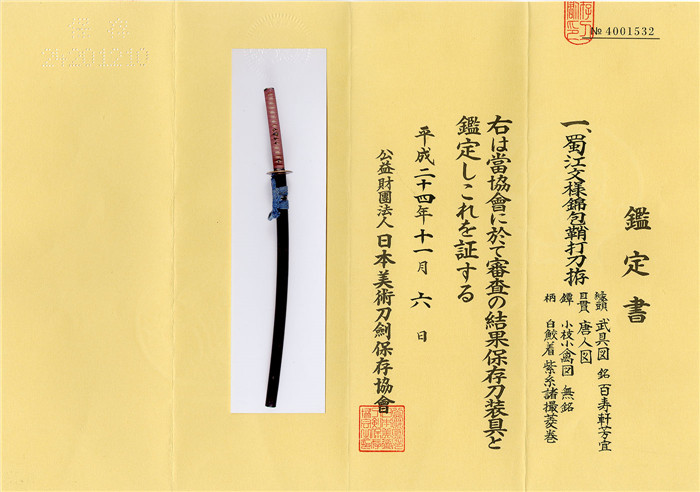 № 4001532
鑑定書
一、蜀江文様錦包鞘打刀拵
縁頭 武具図 銘 百寿軒芳宜
目貫 唐人図
鐔 小枝小禽図 無銘
柄 白鮫着 紫糸諸撮菱巻
右は當協會に於て審査の結果保存刀装具と
鑑定しこれを証する
平成二十四年十一月六日
公益財團法人 日本美術刀劍保存協會